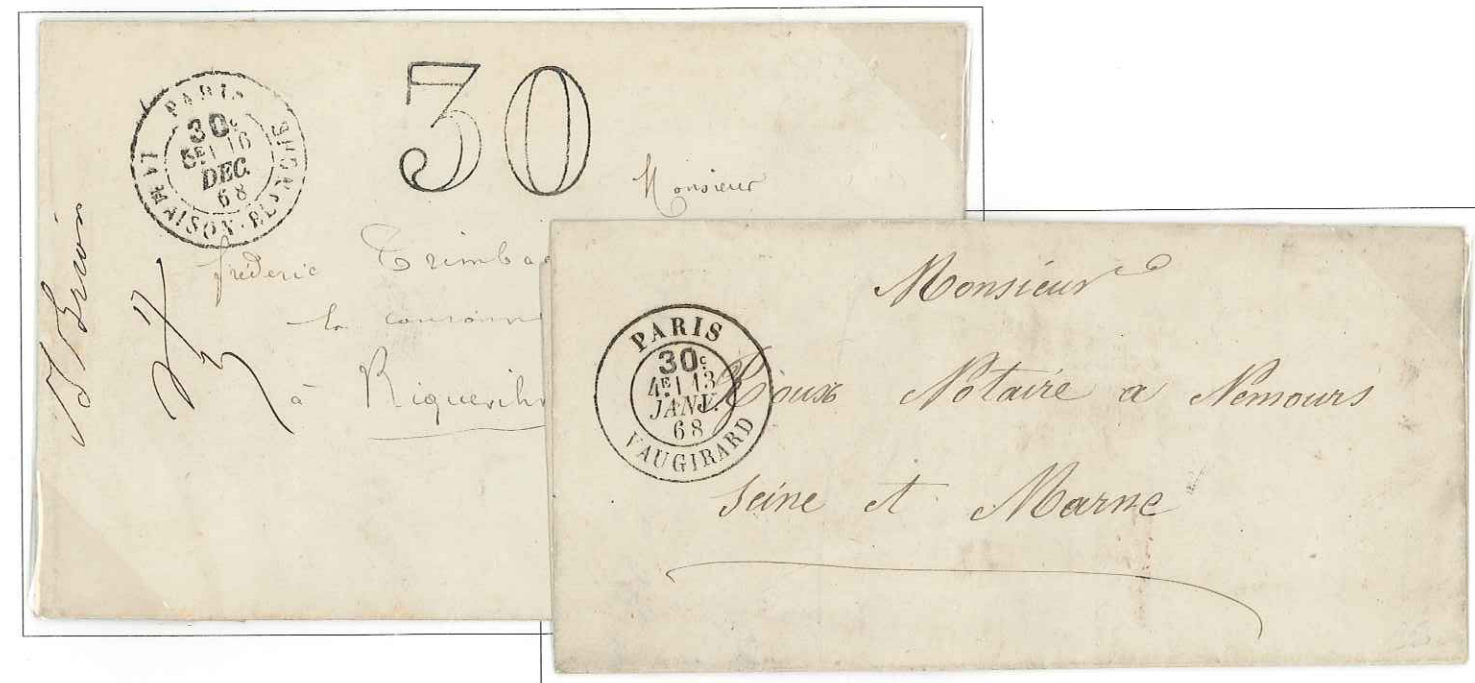 PARIS
30c
5E 16
DEC.
68
LA MAISON-BLANCHE
30
Monsieur
frédéric Trimba
la couronn
à Riquewih
PARIS
30c
4E 13
JANV.
68
VAUGIRARD
Monsieur
Roux Notaire a Nemours
Seine et Marne